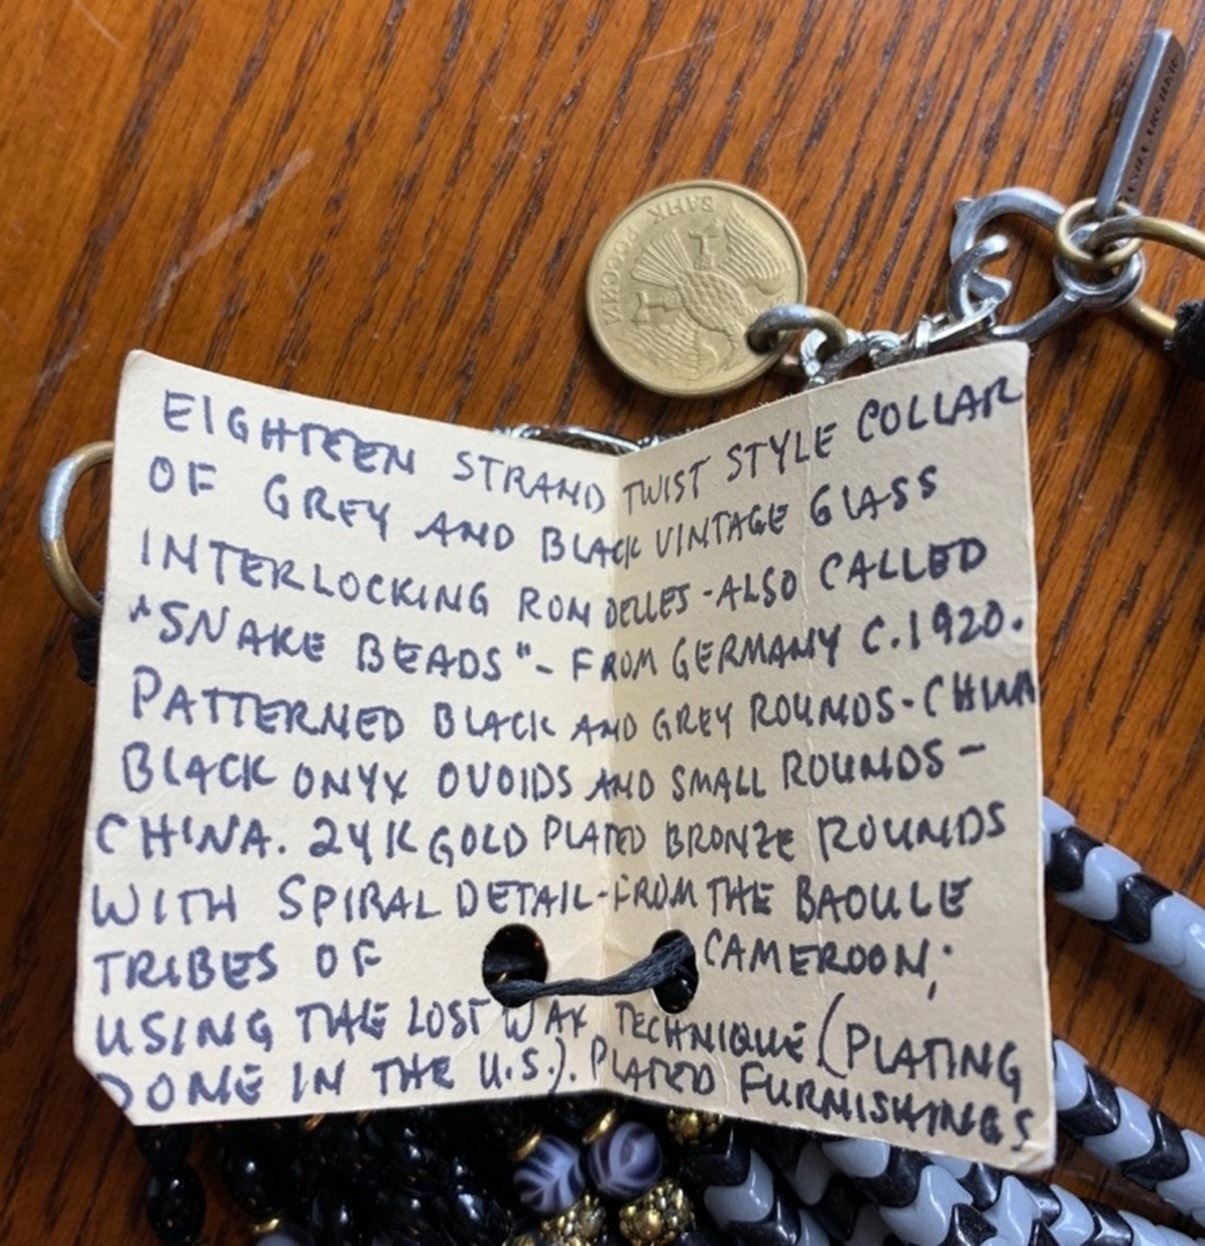 БАНК РОССИИ
EIGHTEEN STRAND TWIST STYLE COLLAR
OF GREY AND BLACK VINTAGE GLASS
INTERLOCKING RONDELLES - ALSO CALLED
"SNAKE BEADS" - FROM GERMANY C. 1920.
PATTERNED BLACK AND GREY ROUNDS - CHINA
BLACK ONYX OVOIDS AND SMALL ROUNDS -
CHINA. 24K GOLD PLATED BRONZE ROUNDS
WITH SPIRAL DETAIL - FROM THE BAOULE
TRIBES OF CAMEROON;
USING THE LOST WAX TECHNIQUE (PLATING
DONE IN THE U.S.). PLATED FURNISHINGS